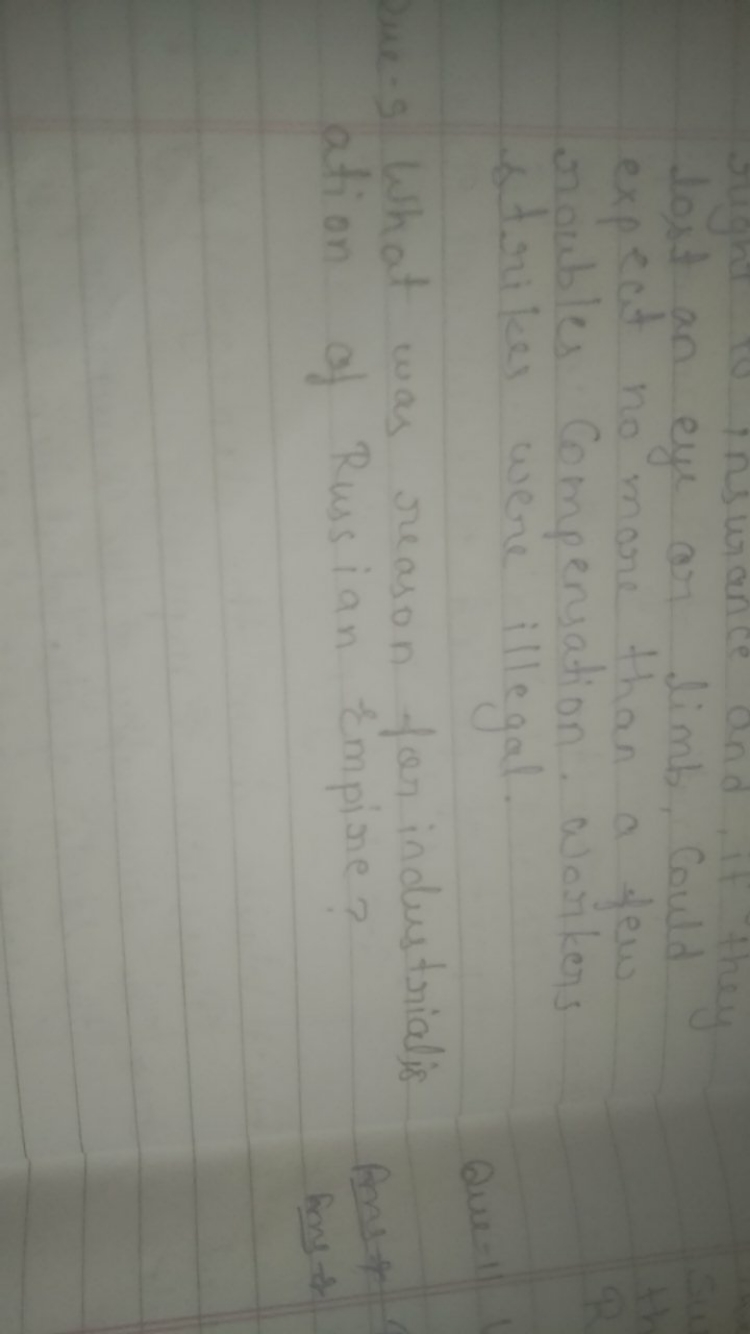 right to insurance and, if they
lost an eye or limb, could
expect no more than a few
roubles compensation. workers
strikes were illegal.
Que-9 What was reason for industrialis
ation of Russian Empire?
Que-11
Ans→
Ans→
th
R